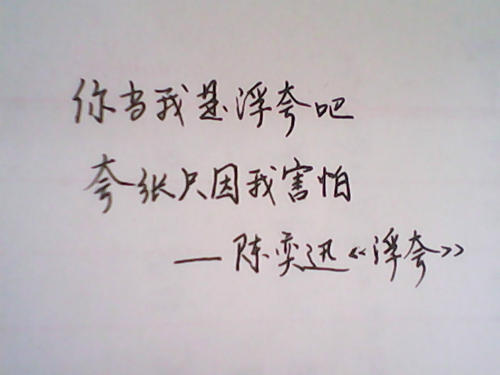 你当我是浮夸吧
夸张只因我害怕
—陈奕迅《浮夸》